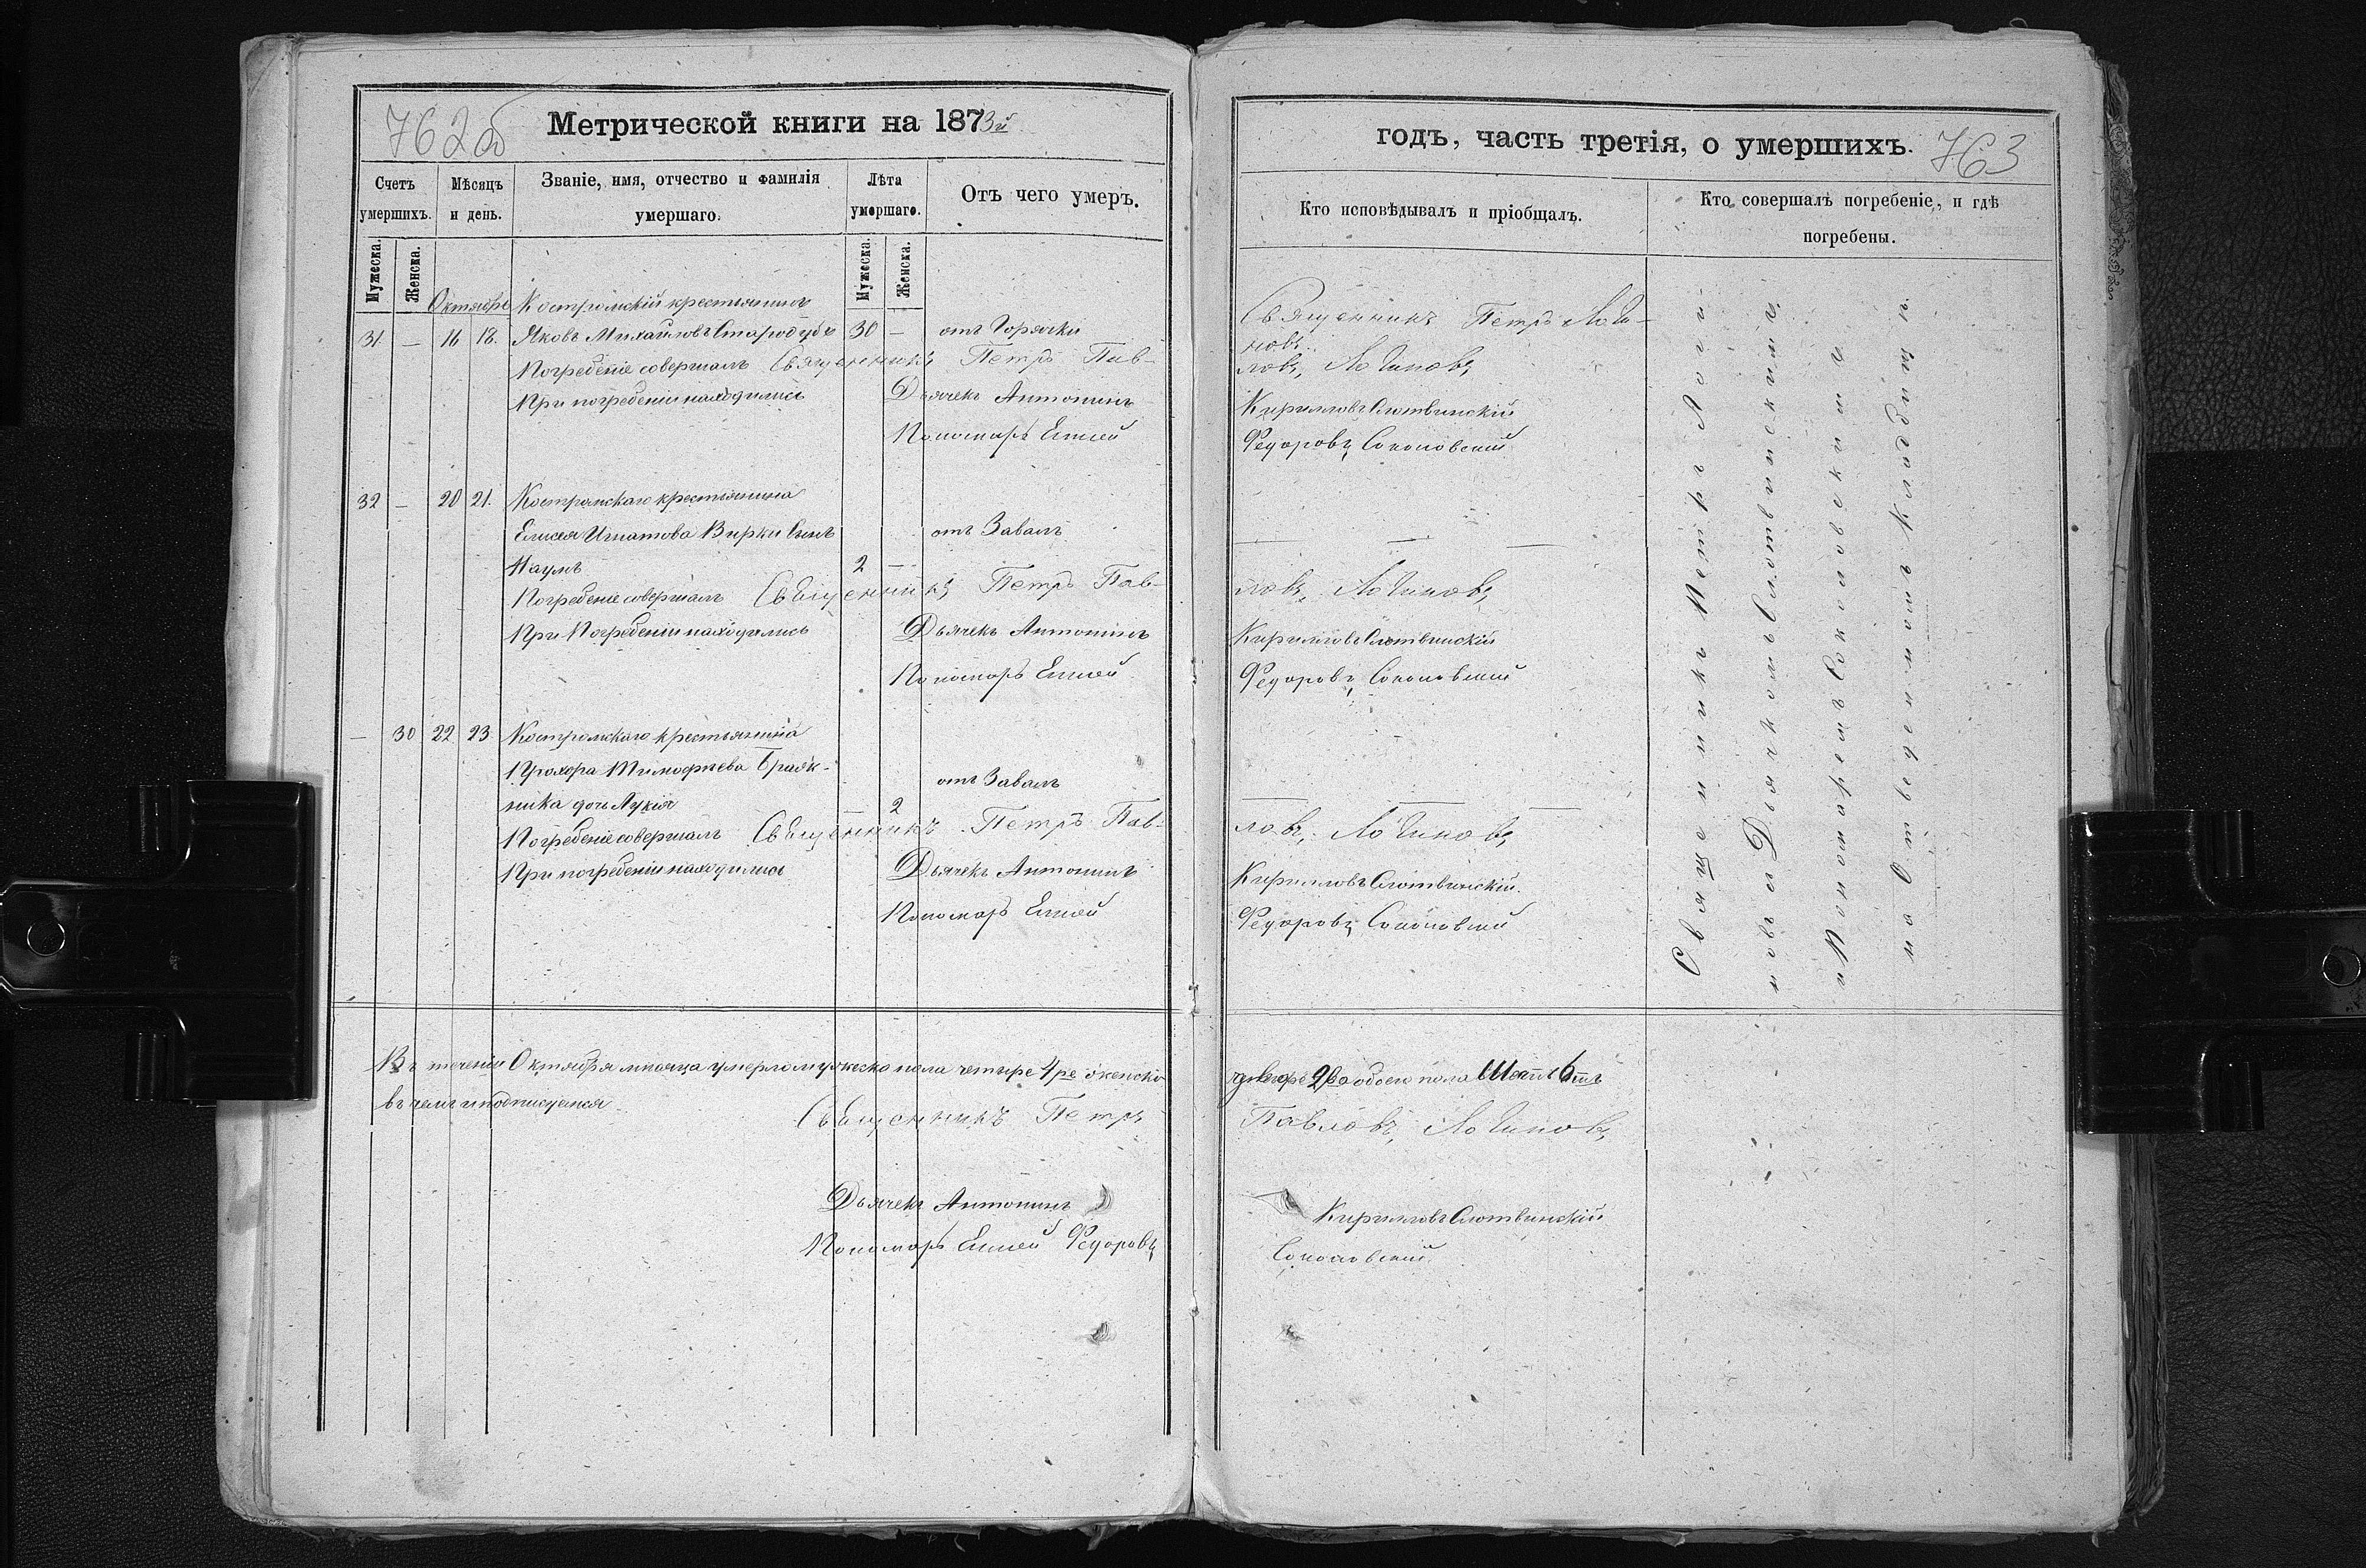 762об
Метрической книги на 1873й
Счетъ умершихъ.
Мѣсяцъ и день.
Званіе, имя, отчество и фамилія умершаго.
Лѣта умершаго.
Отъ чего умеръ.
Мужеска.
Женска.
Мужеска.
Женска.
Октябрь Костромскій крестьянинъ
31 — 16 18. Яковъ Михайловъ Стародубъ 30 — отъ Горячки
Погребеніе совершалъ Священникъ Петръ Пав-
При погребеніи находились Дьячекъ Антонинъ
Пономарь Елисей
32 — 20 21. Костромскаго крестьянина
Елисея Игнатова Вирки сынъ отъ Завалъ
Наумъ 2 —
Погребеніе совершалъ Священникъ Петръ Пав-
При Погребеніи находились Дьячекъ Антонинъ
Пономарь Елисей
— 30 22 23 Костромскаго крестьянина
Прохора Тимофѣева Бражк- отъ Завалъ
ника дочь Лукія — 2
Погребеніе совершалъ Священникъ Петръ Пав-
При погребеніи находились Дьячекъ Антонинъ
Пономарь Елисей
Въ теченіи Октября мѣсяца умерло мужеска пола четыре 4ре женска
въ чемъ и подписуемся
Священникъ Петръ
Дьячекъ Антонинъ
Пономарь Елисей Федоровъ
годъ, часть третія, о умершихъ.
763
Кто исповѣдывалъ и пріобщалъ.
Кто совершалъ погребеніе, и гдѣ погребены.
Священникъ Петръ Логи-
новъ.
ловъ, Логиновъ
Кирилловъ Слотвинскій
Федоровъ Соколовский
ловъ, Логиновъ
Кирилловъ Слотвинскій
Федоровъ Соколовский
ловъ, Логиновъ
Кирилловъ Слотвинскій.
Федоровъ Соколовский
Священникъ Петръ Логи-
новъ и Дьячкомъ Слотвинскимъ
и Пономаремъ Соколовскимъ
на Отведенномъ Кладбищѣ.
двѣ 2 обоего пола Шесть 6ть
Павловъ, Логиновъ
Кирилловъ Слотвинскій
Соколовский